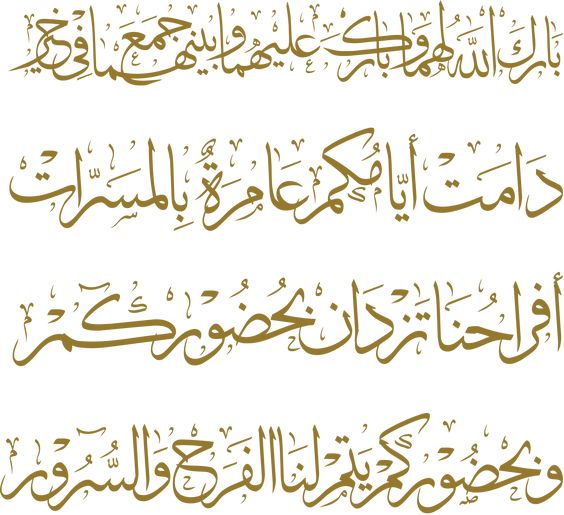 بارك الله لهما وبارك عليهما وجمع بينهما في خير
دامت أيامكم عامرة بالمسرات
أفراحنا تزدان بحضوركم
وبحضوركم يتم لنا الفرح والسرور